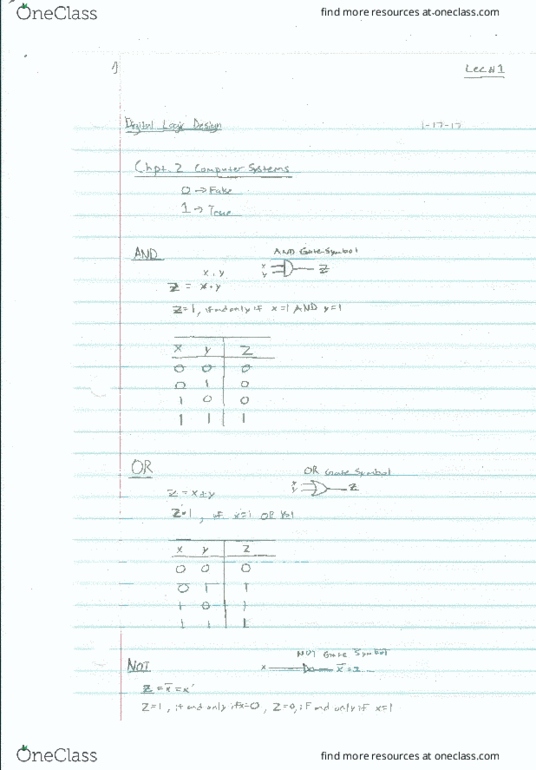 OneClass
find more resources at oneclass.com
1)
Lec #1
Digital Logic Design
1-17-17
Chpt. 2 Computer Systems
0 → False
1 → True
AND
AND Gate Symbol
x y Z
x . y
Z = x . y
Z=1, if and only if x=1 AND y=1
x y Z
0 0 0
0 1 0
1 0 0
1 1 1
OR
OR Gate Symbol
x y Z
Z = x+y
Z=1, if x=1 OR y=1
x y Z
0 0 0
0 1 1
1 0 1
1 1 1
NOT
NOT Gate Symbol
x x̄ = z
Z = x̄ = x'
Z=1, if and only if x=0, Z=0, if and only if x=1
OneClass
find more resources at oneclass.com